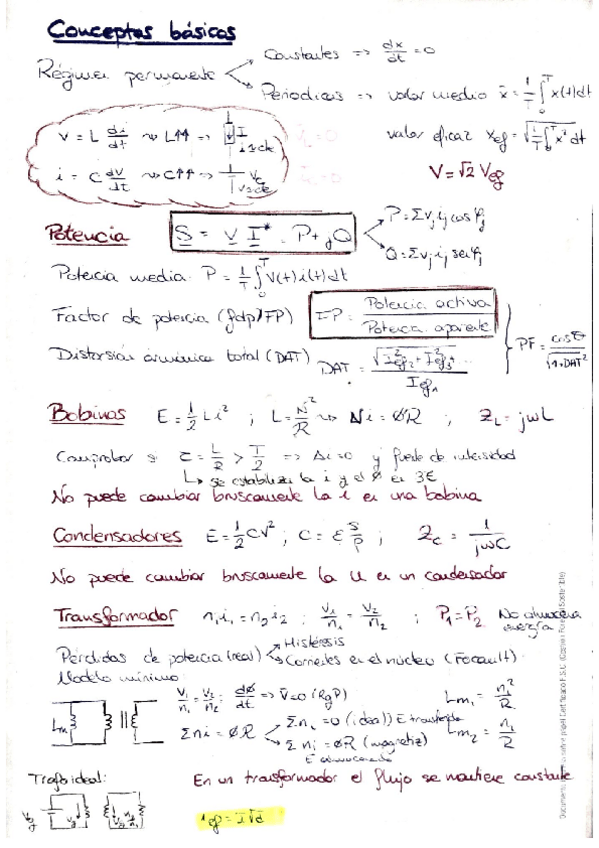 Conceptos básicos
Régimen permanente
Constantes => dx/dt = 0
Periodicas => valor medio x̄ = 1/T ∫₀ᵀ x(t)dt
valor eficaz Xef = √(1/T ∫₀ᵀ x² dt)
V = √2 Vef
V = L di/dt ⇝ L↑↑ => I
i = C dV/dt ⇝ C↑↑ => Vc
Potencia S = V I* = P + jQ
P = Σ vj ij cos φj
Q = Σ vj ij sen φj
Potencia media P = 1/T ∫₀ᵀ V(t) i(t) dt
Factor de potencia (fdp/FP) FP = Potencia activa / Potencia aparente
Distorsión armónica total (DAT) DAT = √(I²ef2 + I²ef3 + ...) / Ief1
Bobinas E = 1/2 L i² ; L = N²/R ⇝ Ni = ØR ; ZL = jωL
Comprobar si > T/2 => Δi = 0 y fuente de intensidad
↳ se estabiliza la i y el Ø en
No puede cambiar bruscamente la i en una bobina
Condensadores E = 1/2 CV² ; C = ε ; Zc = 1/jωC
No puede cambiar bruscamente la U en un condensador
Transformador n₁i₁ = n₂i₂ ; V₁/n₁ = V₂/n₂ ; P₁ = P₂ No almacena energía
Pérdidas de potencia (real)
Histéresis
Corrientes en el núcleo (Focault)
Modelo mínimo:
V₁/n₁ = V₂/n₂ = dØ/dt => V̄ = 0 (RgP)
Lm₁ = n₁²/R
Lm
Σ ni = ØR
Σ ni = 0 (ideal) E transferida
Σ ni = ØR (magnetiz)
E almacenada
Trafo ideal:
En un transformador el flujo se mantiene constante